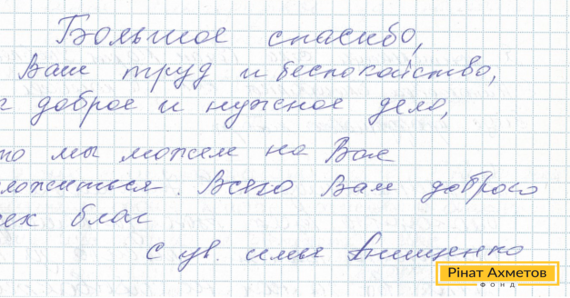 Большое спасибо,
Ваш труд и беспокойство,
доброе и нужное дело,
мы можем на Вас
ложиться. Всего Вам доброго
благ
с ув. семья Анищенко
Рінат Ахметов
ФОНД